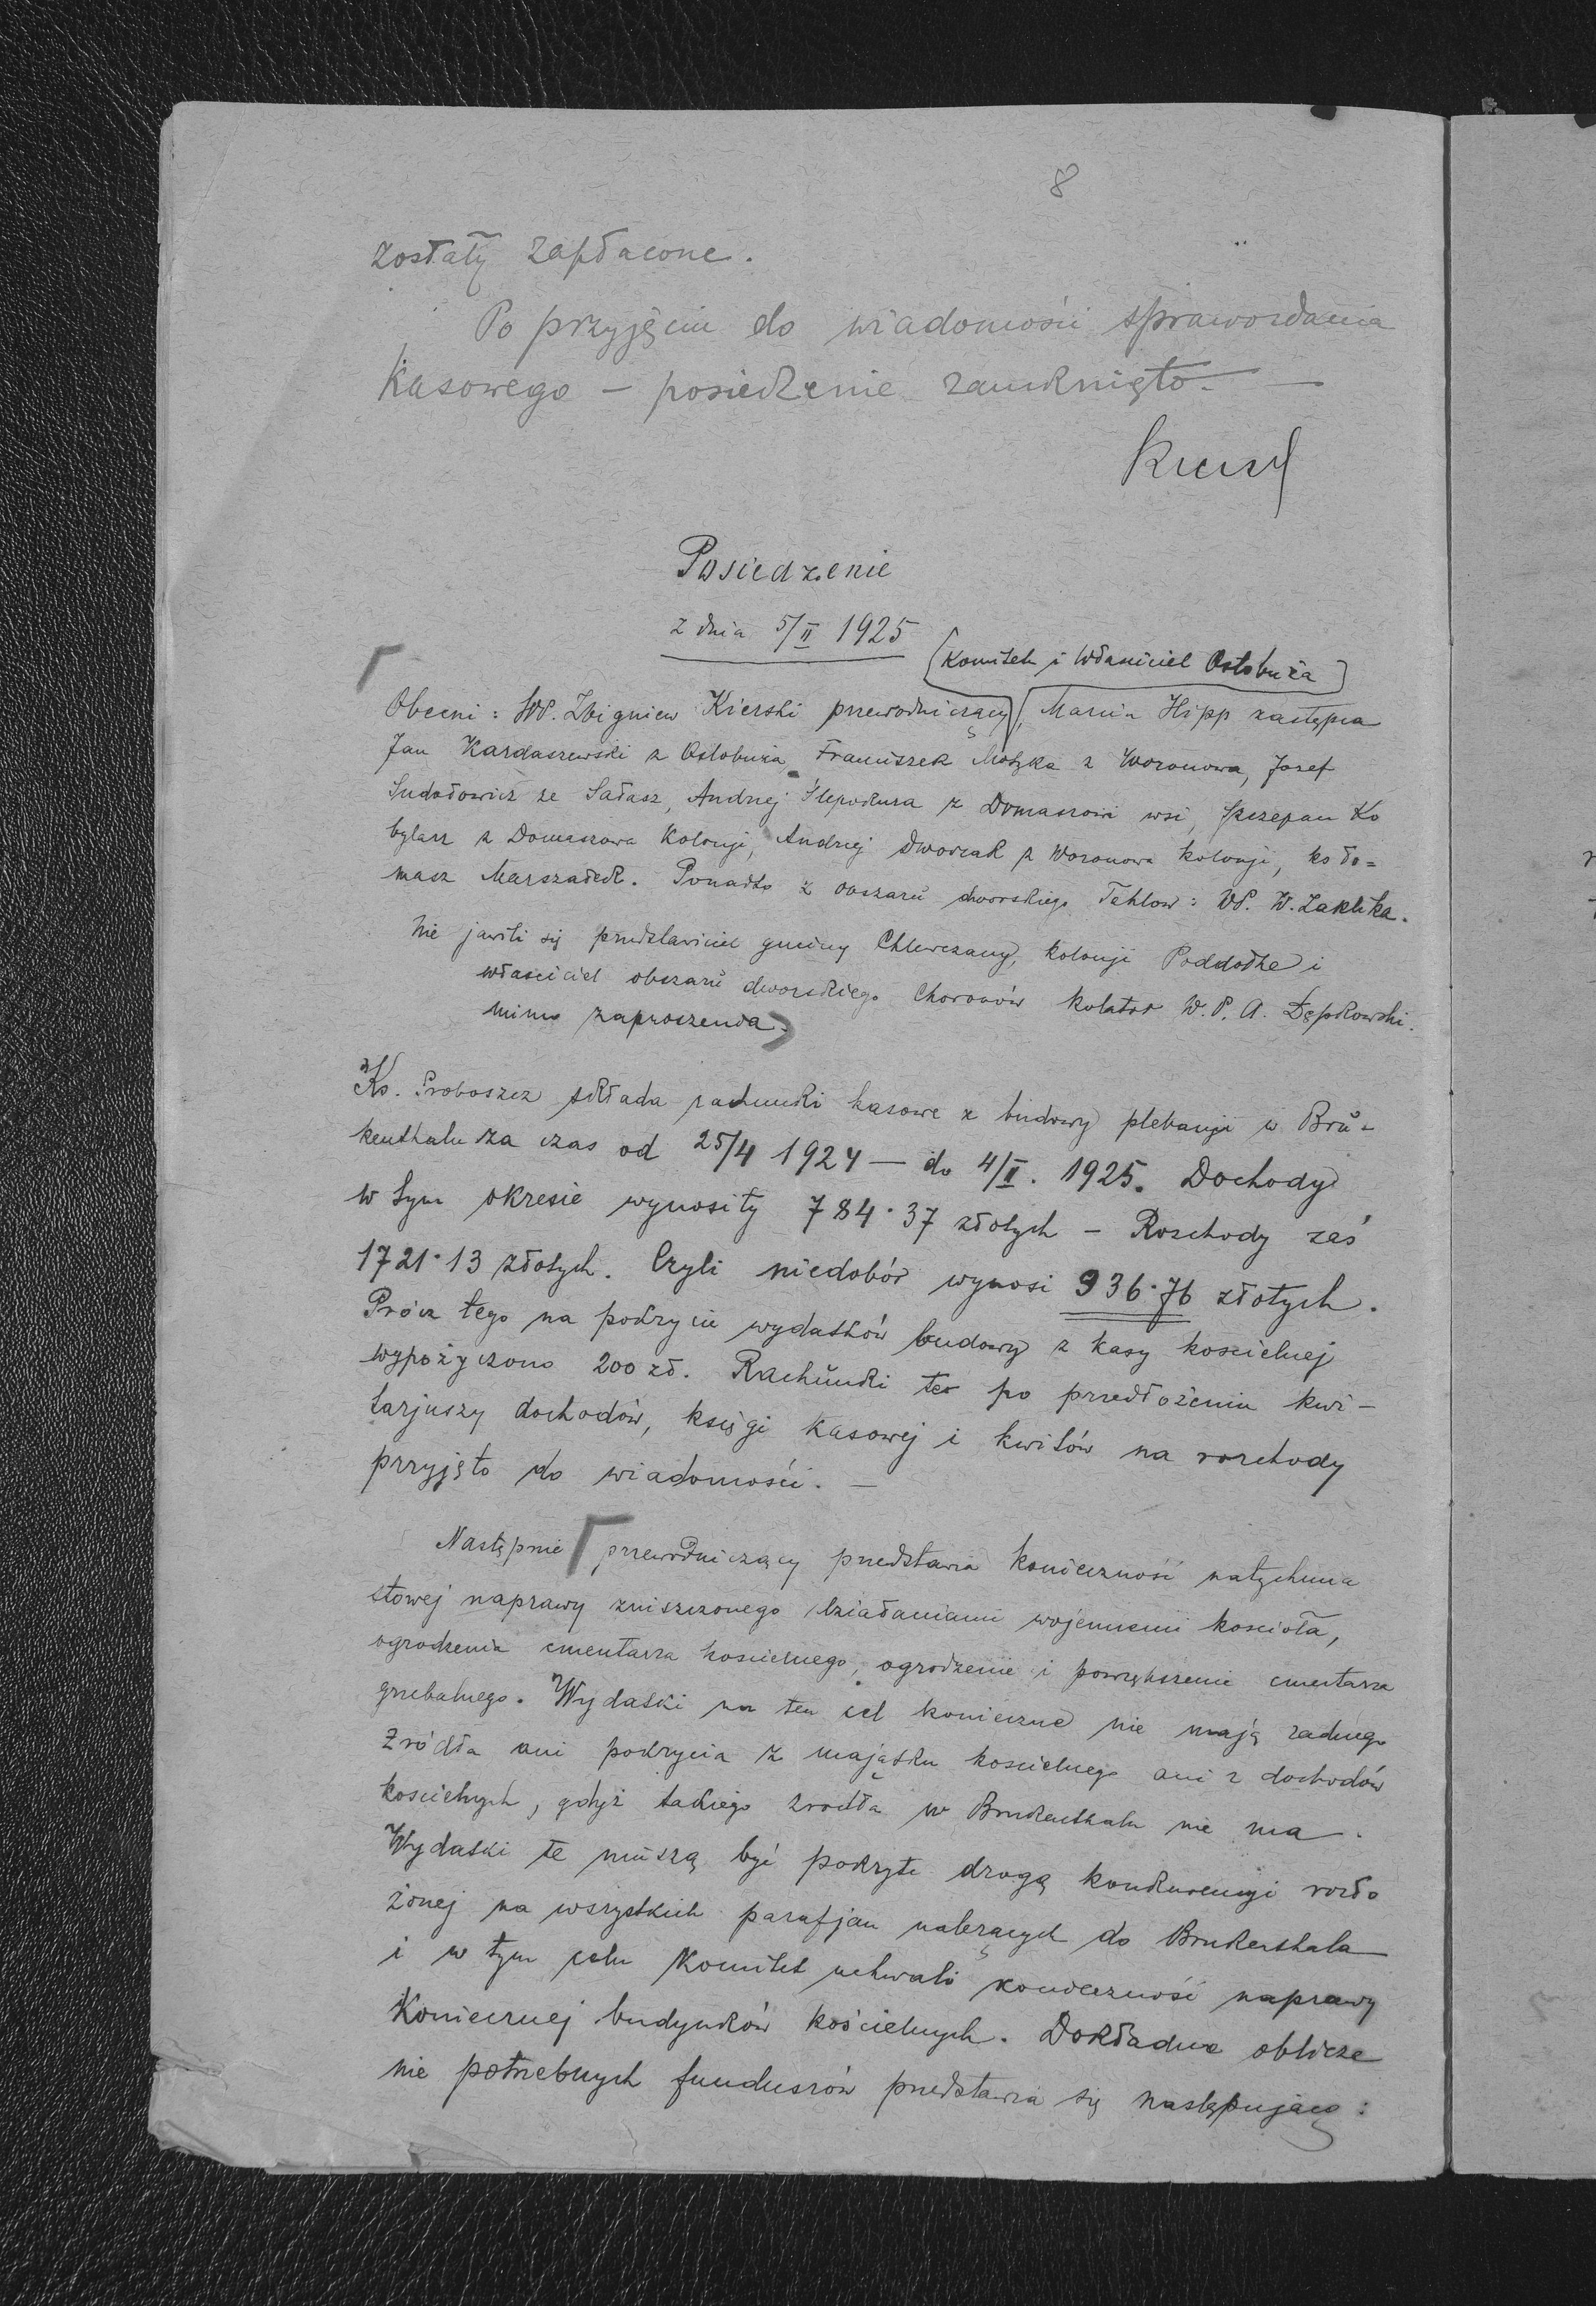 8
zostały zapłacone.
Po przyjęciu do wiadomości sprawozdania
Kasowego – posiedzenie zamknięto. —
Posiedzenie
z dnia 5/II 1925
(Komitetu i Właściciel Ostobuża)
Obecni: WP. Zbigniew Kierski przewodniczący, Marcin Hipp zastępca
Jan Kardaszewski z Ostobuża, Franciszek Motyka z Woronowa, Jozef
ze Sałasz, Andrzej Ślepokura z Domaszowa wsi, Szczepan Ko
bylarz z Domaszowa Kolonji, Andrzej Dworzak z Woronowa kolonji,
masz Marszałek. Ponadto z obszaru dworskiego Tehlow: WP. W. Zaklika.
Nie jawili się przedstawiciel gminy Chlewczany, kolonji Poddołhe i
właściciel obszaru dworskiego Choronów kolator W. P. A. Dębkowski.
mimo zaproszenia.
Ks. Proboszcz składa rachunki kasowe z budowy plebanji w Brü-
kenthalu za czas od 25/4 1924 — do 4/II. 1925. Dochody
w tym okresie wynosiły 784·37 złotych – Rozchody zaś
1721·13 złotych. Czyli niedobór wynosi 936·76 złotych.
Prócz tego na pokrycie wydatków budowy z kasy koscielnej
wypożyczono 200 zł. Rachunki te po przedłożeniu kwi-
tarjuszy dochodów, księgi kasowej i kwitów na rozchody
przyjęto do wiadomości. —
Następnie przewodniczący przedstawia konieczność natychmia
stowej naprawy zniszczonego działaniami wojennemi kosciola,
ogrodzenia cmentarza koscielnego, ogrodzenie i powiększenie cmentarza
grzebalnego. Wydatki na ten cel konieczne nie mają żadnego
Zródła ani pokrycia z majątku koscielnego ani z dochodów
koscielnych, gdyż takiego zrodła w Brukenthalu nie ma.
Wydatki te muszą być pokryte drogą konkurencyi rozło
żonej na wszystkich parafjan należących do Brukenthala
i w tym celu Komitet uchwali konieczność naprawy
Koniecznej budynków kościelnych. Dokładne oblicze
nie potrzebnych funduszów przedstawia się następująco: